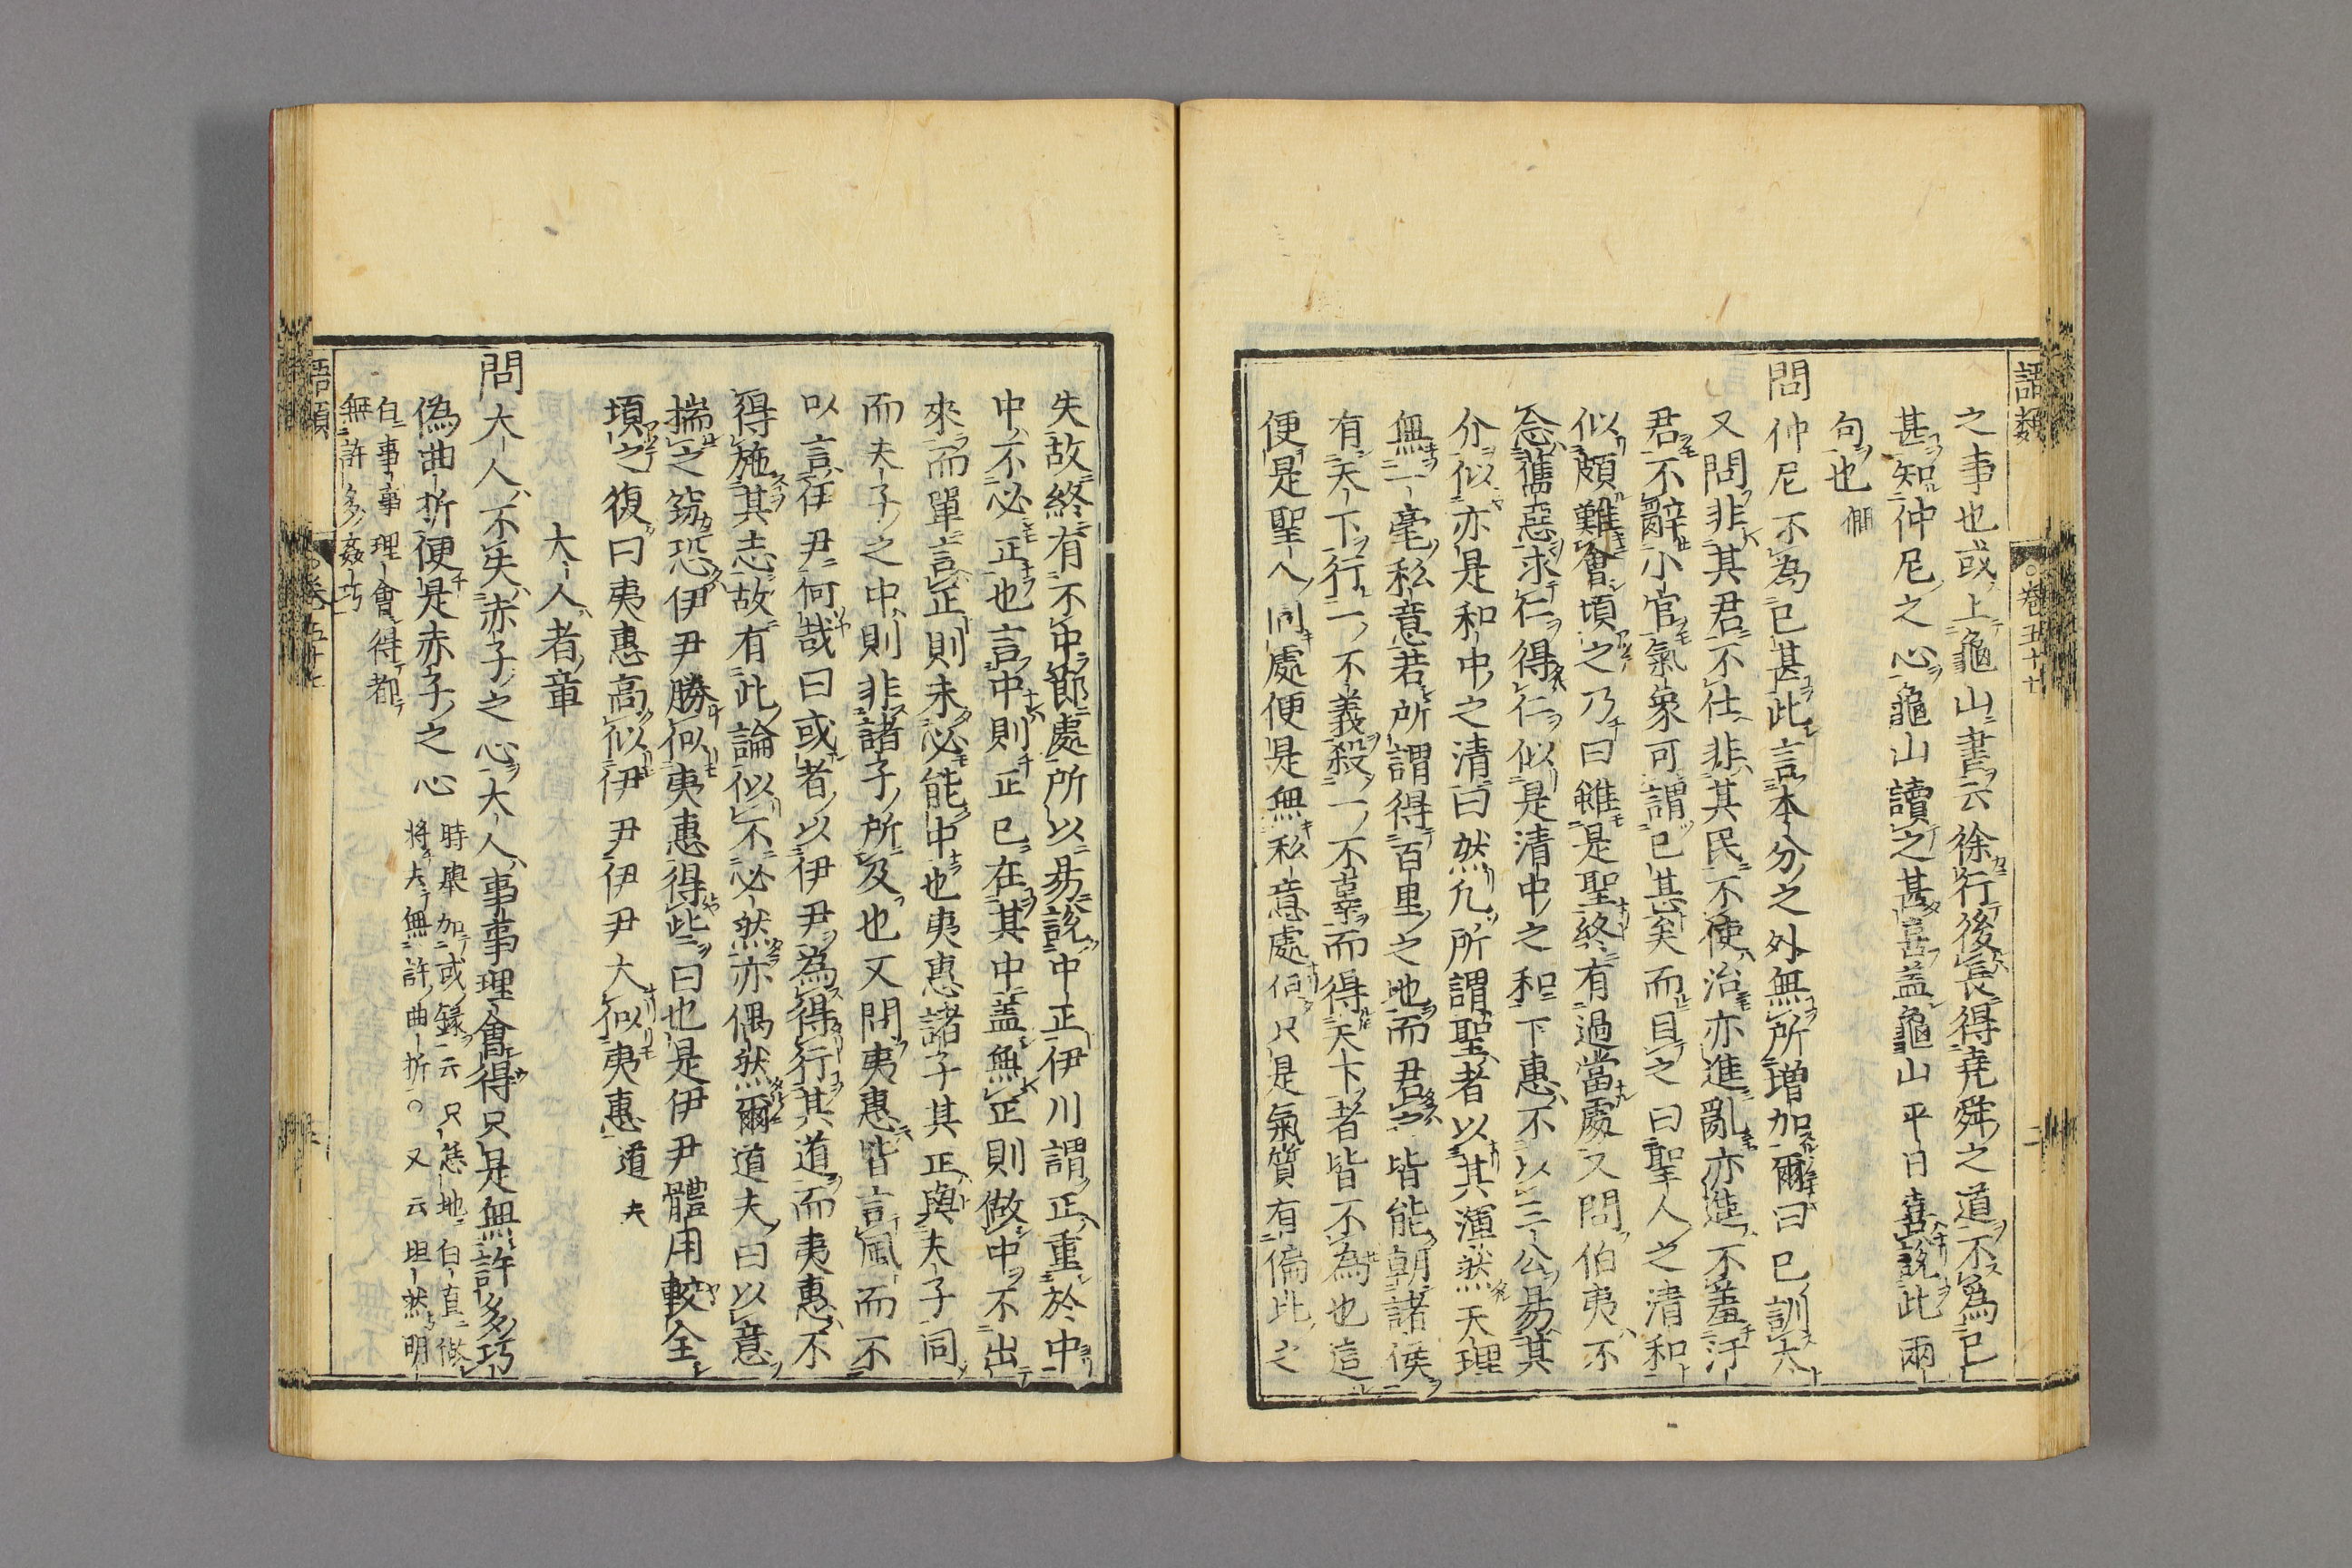 語類
卷五十七
二
之事也或上龜山書云徐行後長得堯舜之道不為已
甚知仲尼之心龜山讀之甚喜盖龜山平日喜說此兩
句也 僩
問仲尼不為已甚此言本分之外無所增加爾曰已訓太
又問非其君不仕非其民不使治亦進亂亦進不羞汙
君不辭小官氣象可謂已甚矣而目之曰聖人之清和
似頗難會頃之乃曰雖是聖終有過當處又問伯夷不
念舊惡求仁得仁似是清中之和下惠不以三公易其
介似亦是和中之清曰然凡所謂聖者以其渾然天理
無一毫私意若所謂得百里之地而君之皆能朝諸侯
有天下行一不義殺一不辜而得天下者皆不為也這
便是聖人同處便是無私意處但只是氣質有偏此之
失故終有不中節處所以易說中正伊川謂正重於中
中不必正也言中則正已在其中盖無正則做中不出
來而單言正則未必能中也夷惠諸子其正與夫子同
而夫子之中則非諸子所及也又問夷惠皆言風而不
以言伊尹何哉曰或者以伊尹為得行其道而夷惠不
得施其志故有此論似不必然亦偶然爾道夫曰以意
揣之窈恐伊尹勝似夷惠得些曰也是伊尹體用較全
頃之復曰夷惠高似伊尹伊尹大似夷惠 道夫
大人者章
問大人不失赤子之心大人事事理會得只是無許多巧
偽曲折便是赤子之心 時舉 加或錄云 只恁地白直做
將去無許曲折○又云坦然明
白事事理會得都
無許多姦巧
語類
卷五十七